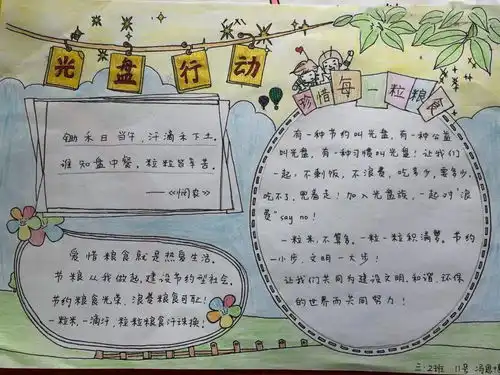 光盘行动
珍惜每一粒粮食
锄禾日当午,汗滴禾下土。
谁知盘中餐,粒粒皆辛苦。
——《悯农》
爱惜粮食就是热爱生活。
节粮从我做起,建设节约型社会。
节约粮食光荣,浪费粮食可耻!
一粒米,一滴汗,粒粒粮食汗珠换。
有一种节约叫光盘,有一种公益
叫光盘,有一种习惯叫光盘!让我们
一起,不剩饭,不浪费,吃多少,要多少,
吃不了,兜着走!加入光盘族,一起对“浪
费”say no!
一粒米,不算多,一粒一粒积满箩。节约
一小步,文明一大步!
让我们共同为建设文明、和谐、环保
的世界而共同努力!
三.2班 11号 冯